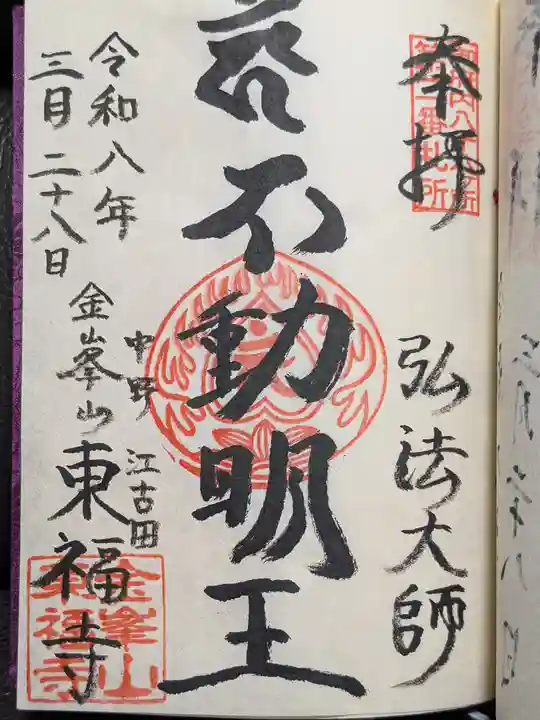 奉拝
弘法大師
不動明王
令和八年
三月二十八日
中野
江古田
金峯山
東福寺
金峯山
東福寺